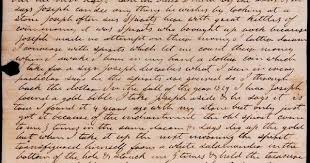 says Joseph
stone Joseph often sees Spirits here with great kettles of
coin money it was Spirits who brought up rock because
Joseph made no attempt on their money I latter dream
I converse with spirits which let me count their money
when I awake I have in my hand a dollar coin which
I take for a sign Joseph describes what I seen in every
particular says he the spirits are grieved so I through
back the dollar In the fall of the year 1827 I hear Joseph
found a gold bible I take Joseph aside & he says it is
true I found it 4 years ago with my stone but only just
got it because of the enchantment the old spirit come
to me 3 times in the same dream & says dig up the gold
but when I take it up the next morning the spirit
transfigured himself from a white salamander in the
bottom of the hole & struck me 3 times & held the treasure